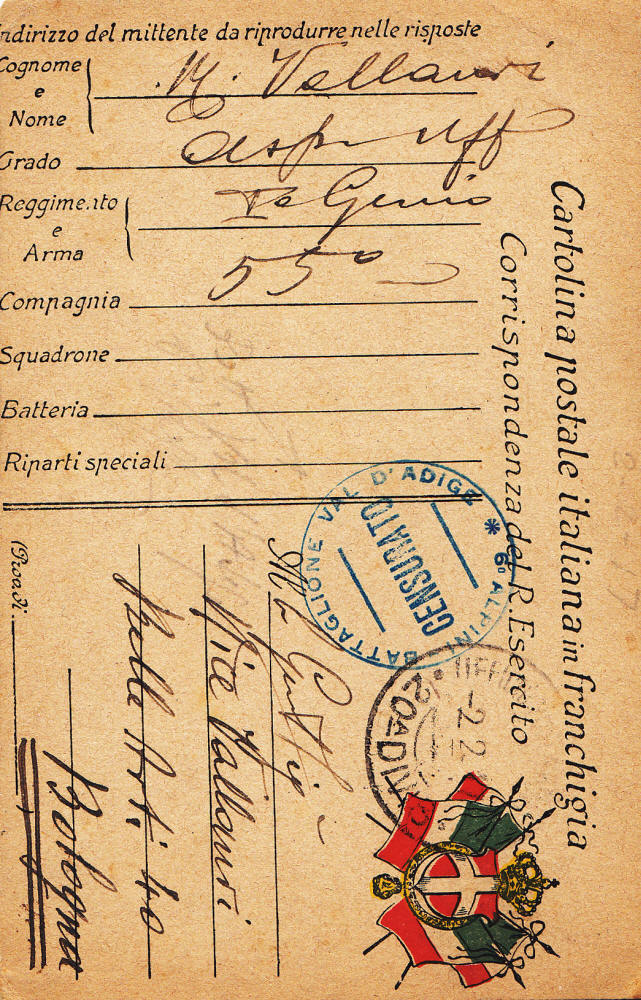 Indirizzo del mittente da riprodurre nelle risposte
Cognome e Nome M. Vallauri
Grado Asp. Uff
Reggimento e Arma Io Genio
Compagnia 55a
Squadrone
Batteria
Riparti speciali
Cartolina postale italiana in franchigia
Corrispondenza del R. Esercito
BATTAGLIONE VAL D'ADIGE * 6° ALPINI
CENSURATO
20a DI
Vice Vallauri
Belle Arti 40
Bologna
(Prov. di